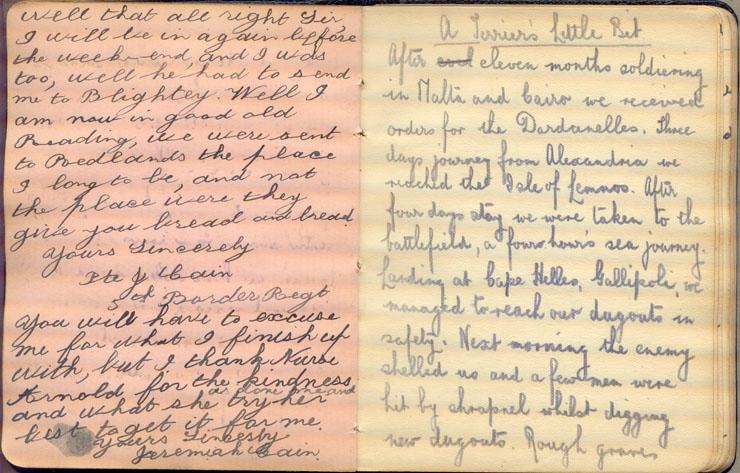 Well that all right Sir
I will be in again before
the week-end, and I was
too, well he had to send
me to Blightey. Well I
am now in good old
Reading, we were sent
to Redlands the place
I long to be, and not
the place were they
give you bread and bread
Yours Sincerely
Pte J Cain
Border Regt
You will have to excuse
me for what I finish up
with, but I thank Nurse
Arnold, for the kindness
as done me and
and what she try her
best to get it for me.
Yours Sincesly
Jeremiah Cain.
A Terrier's Little Bit
After eleven months soldiering
in Malta and Cairo we received
orders for the Dardanelles. Three
days journey from Alexandria we
reached the Isle of Lemnos. After
four days stay we were taken to the
battlefield, a fours hour's sea journey.
Landing at Cape Helles, Gallipoli, we
managed to reach our dugouts in
safety. Next morning the enemy
shelled us and a few men were
hit by shrapnel whilst digging
new dugouts. Rough graves